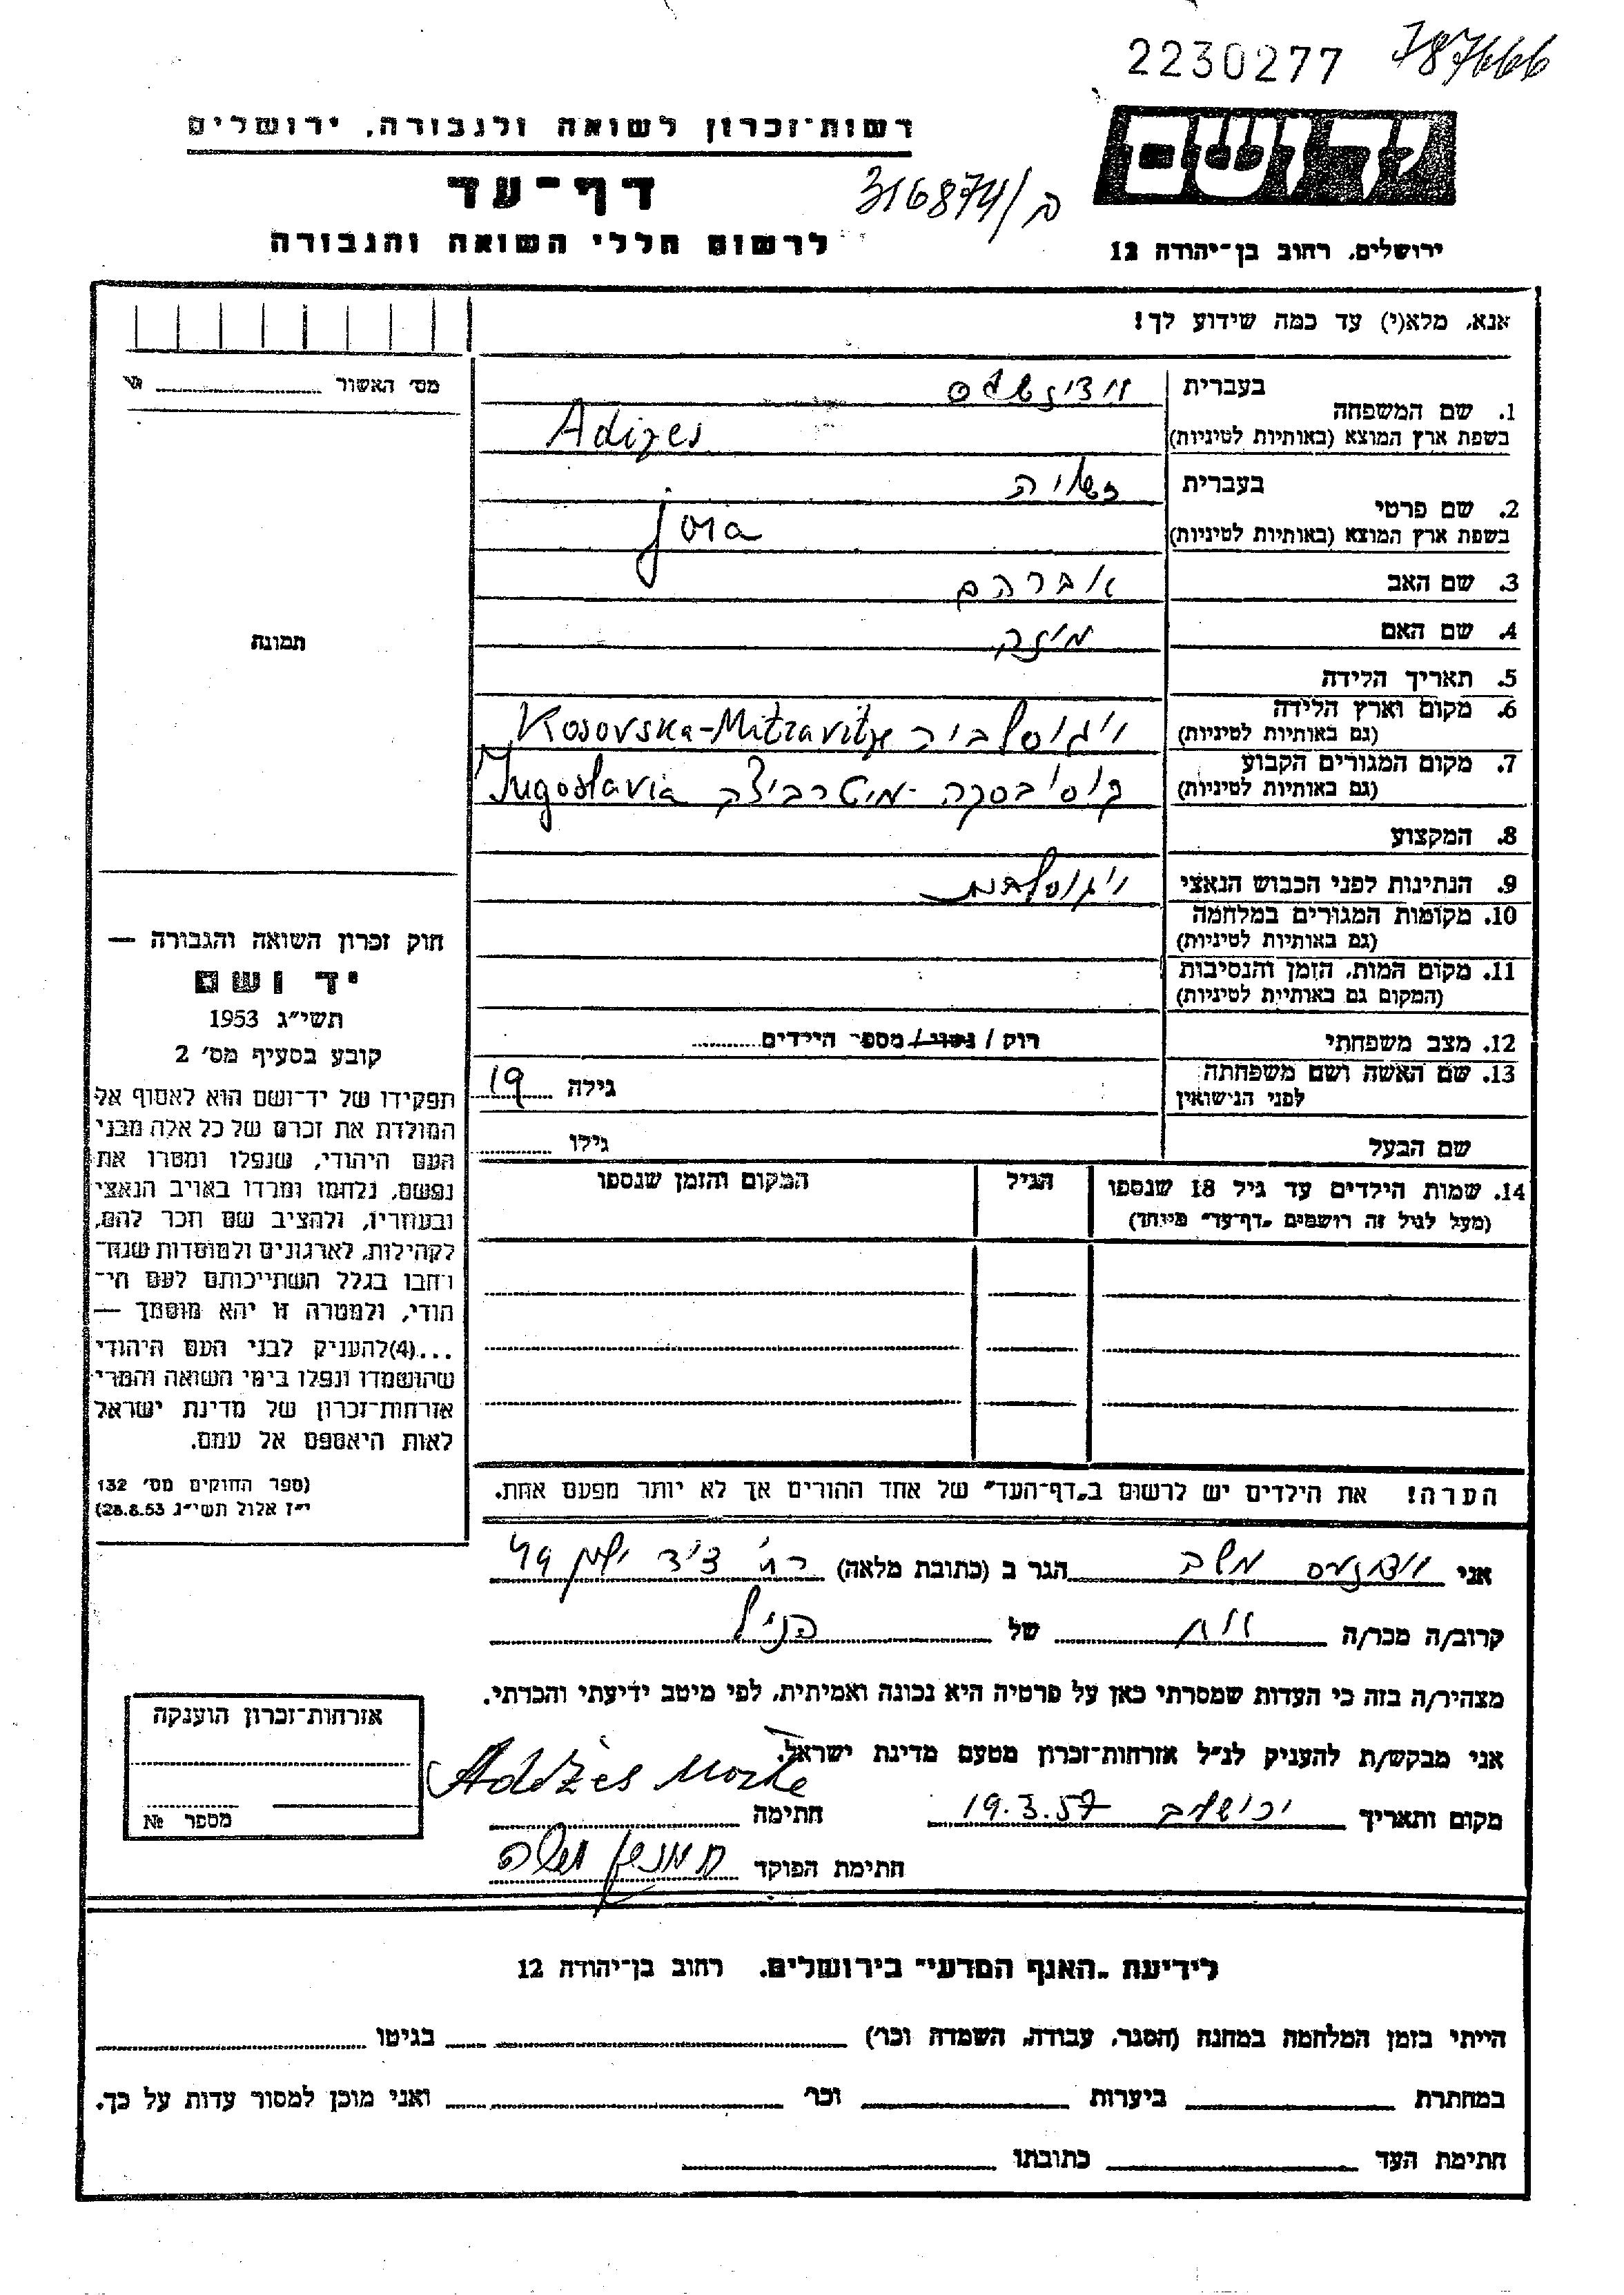 2230277 787666
יד ושם
רשות־זכרון לשואה ולגבורה, ירושלים
דף־עד
316874/ה
לרשום חללי השואה והגבורה
ירושלים, רחוב בן־יהודה 12
אנא, מלא(י) עד כמה שידוע לך!
מס׳ האשור
1. שם המשפחה
בעברית
בשפת ארץ המוצא (באותיות לטיניות) Adizes
2. שם פרטי
בעברית
בשפת ארץ המוצא (באותיות לטיניות) jora
3. שם האב אברהם
4. שם האם
תמונת
5. תאריך הלידה
6. מקום וארץ הלידה יוגוסלביה Kosovska-Mitravitze
(גם באותיות לטיניות)
7. מקום המגורים הקבוע קוסובסקה-מיטרביצה Jugoslavia
(גם באותיות לטיניות)
8. המקצוע
9. הנתינות לפני הכבוש הנאצי
10. מקומות המגורים במלחמה
(גם באותיות לטיניות)
11. מקום המות, הזמן והנסיבות
(המקום גם באותיות לטיניות)
12. מצב משפחתי רוק / נשוי / מספר הילדים
13. שם האשה ושם משפחתה
לפני הנישואין
גילה 19
שם הבעל גילו
14. שמות הילדים עד גיל 18 שנספו הגיל המקום והזמן שנספו
(מעל לגיל זה רושמים „דף־עד״ מיוחד)
חוק זכרון השואה והגבורה —
יד ושם
תשי״ג 1953
קובע בסעיף מס׳ 2
תפקידו של יד־ושם הוא לאסוף אל
המולדת את זכרם של כל אלה מבני
העם היהודי, שנפלו ומסרו את
נפשם, נלחמו ומרדו באויב הנאצי
ובעוזריו, ולהציב שם וזכר להם,
לקהילות, לארגונים ולמוסדות שנח־
רבו בגלל השתייכותם לעם הי־
הודי, ולמטרה זו יהא מוסמך —
...(4)להעניק לבני העם היהודי
שהושמדו ונפלו בימי השואה והמרי
אזרחות־זכרון של מדינת ישראל
לאות היאספם אל עמם.
(ספר החוקים מס׳ 132
י״ז אלול תשי״ג 28.8.53)
הערה! את הילדים יש לרשום ב„דף־העד״ של אחד ההורים אך לא יותר מפעם אחת.
אני הגר ב (כתובת מלאה)
קרוב/ה מכר/ה אח של הנ״ל
מצהיר/ה בזה כי העדות שמסרתי כאן על פרטיה היא נכונה ואמיתית, לפי מיטב ידיעתי והכרתי.
אני מבקש/ת להעניק לנ״ל אזרחות־זכרון מטעם מדינת ישראל.
מקום ותאריך ירושלים 19.3.57 חתימה Adizes Moshe
חתימת הפוקד
אזרחות־זכרון הוענקה
מספר №
לידיעת „האגף המדעי״ בירושלים, רחוב בן־יהודה 12
הייתי בזמן המלחמה במחנה (הסגר, עבודה, השמדה וכו׳) בגיטו
במחתרת ביערות וכו׳ ואני מוכן למסור עדות על כך.
חתימת העד כתובתו